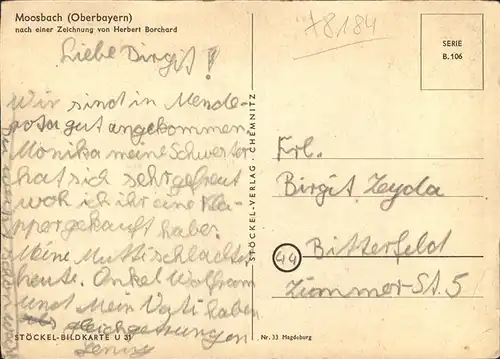 Moosbach (Oberbayern)
nach einer Zeichnung von Herbert Borchard
78184
SERIE
B. 106
Liebe Birgit!
Wir sind in Mende-
rosa gut angekommen
Monika meine Schwester
hat sich sehr gefreut
woh ich ihr eine Kla-
pper gekauft habe.
Meine Mutti schlachtet
heute. Onkel Wolfram
und Mein Vati haben
STÖCKEL-VERLAG · CHEMNITZ
Frl.
Birgit Zeyda
44 Bitterfeld
Zimmer-St. 5
STÖCKEL-BILDKARTE U 31
Nr. 33 Magdeburg